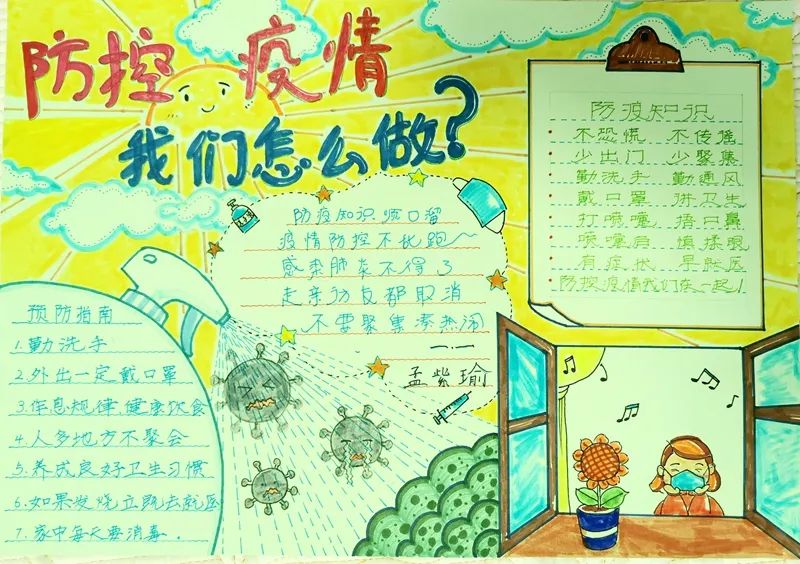 防控 疫情
我们怎么做?
防疫知识
不恐慌 不传谣
少出门 少聚集
勤洗手 勤通风
戴口罩 讲卫生
打喷嚏 捂口鼻
喷嚏后 慎揉眼
有症状 早就医
防控疫情我们在一起!
防疫知识顺口溜
疫情防控不乱跑
感染肺炎不得了
走亲访友都取消
不要聚集凑热闹
一.一
孟紫瑜
预防指南
1.勤洗手
2.外出一定戴口罩
3.作息规律、健康饮食
4.人多地方不聚会
5.养成良好卫生习惯
6.如果发烧立既去就医
7.家中每天要消毒.